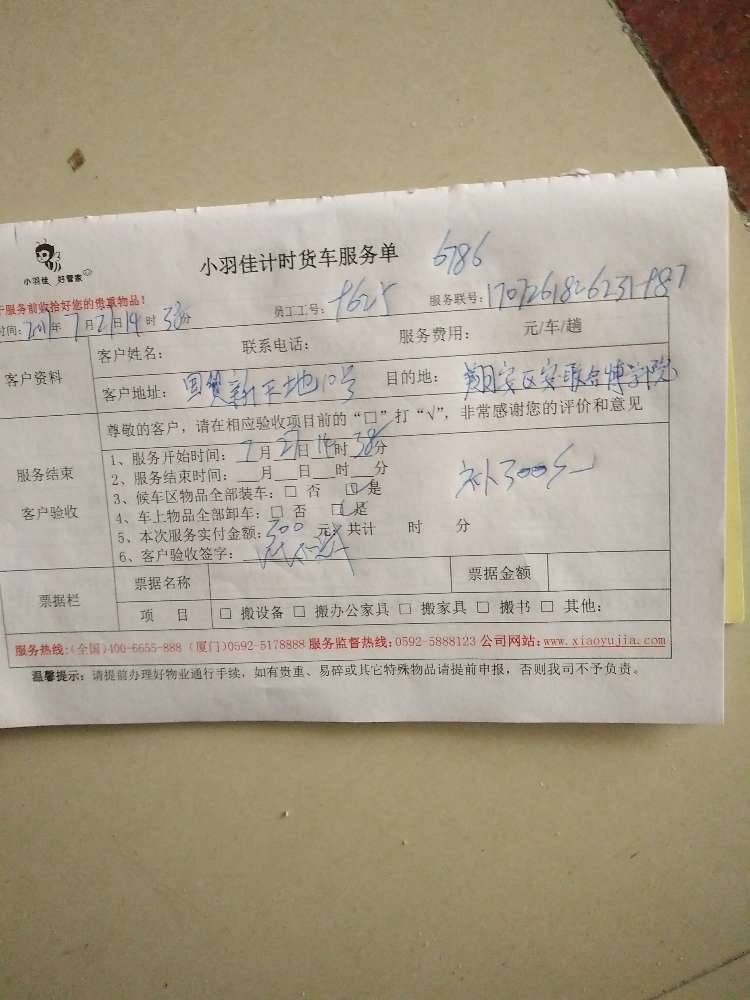 6786
小羽佳 好管家
小羽佳计时货车服务单
服务前收拾好您的贵重物品!
时间: 2017年7月27日14时38分 员工工号: 9625 服务联号: 170726182623
客户资料
客户姓名: 联系电话: 服务费用: 元/车/趟
客户地址: 国贸新天地10号 目的地: 翔安区安联合博学院
尊敬的客户,请在相应验收项目前的“□”打“√”,非常感谢您的评价和意见
服务结束
客户验收
1、服务开始时间: 7月27日14时38分
2、服务结束时间: 月 日 时 分
3、候车区物品全部装车: □ 否 ☑是
4、车上物品全部卸车: □ 否 ☑是
5、本次服务实付金额: 300 元,共计 时 分
6、客户验收签字:
补300元
票据栏
票据名称 票据金额
项 目 □ 搬设备 □ 搬办公家具 □ 搬家具 □ 搬书 □ 其他:
服务热线:(全国)400-6655-888 (厦门)0592-5178888 服务监督热线:0592-5888123 公司网站:www.xiaoyujia.com
温馨提示: 请提前办理好物业通行手续,如有贵重、易碎或其它特殊物品请提前申报,否则我司不予负责。